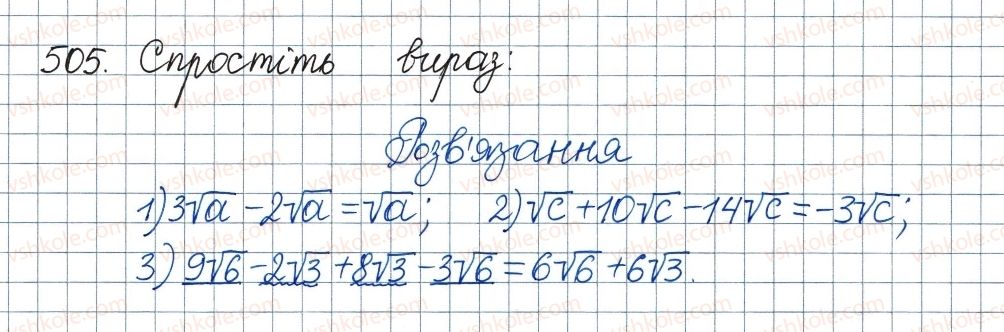 505. Спростіть вираз:
Розв'язання
1) 3√a - 2√a = √a; 2) √c + 10√c - 14√c = -3√c;
3) 9√6 - 2√3 + 8√3 - 3√6 = 6√6 + 6√3.